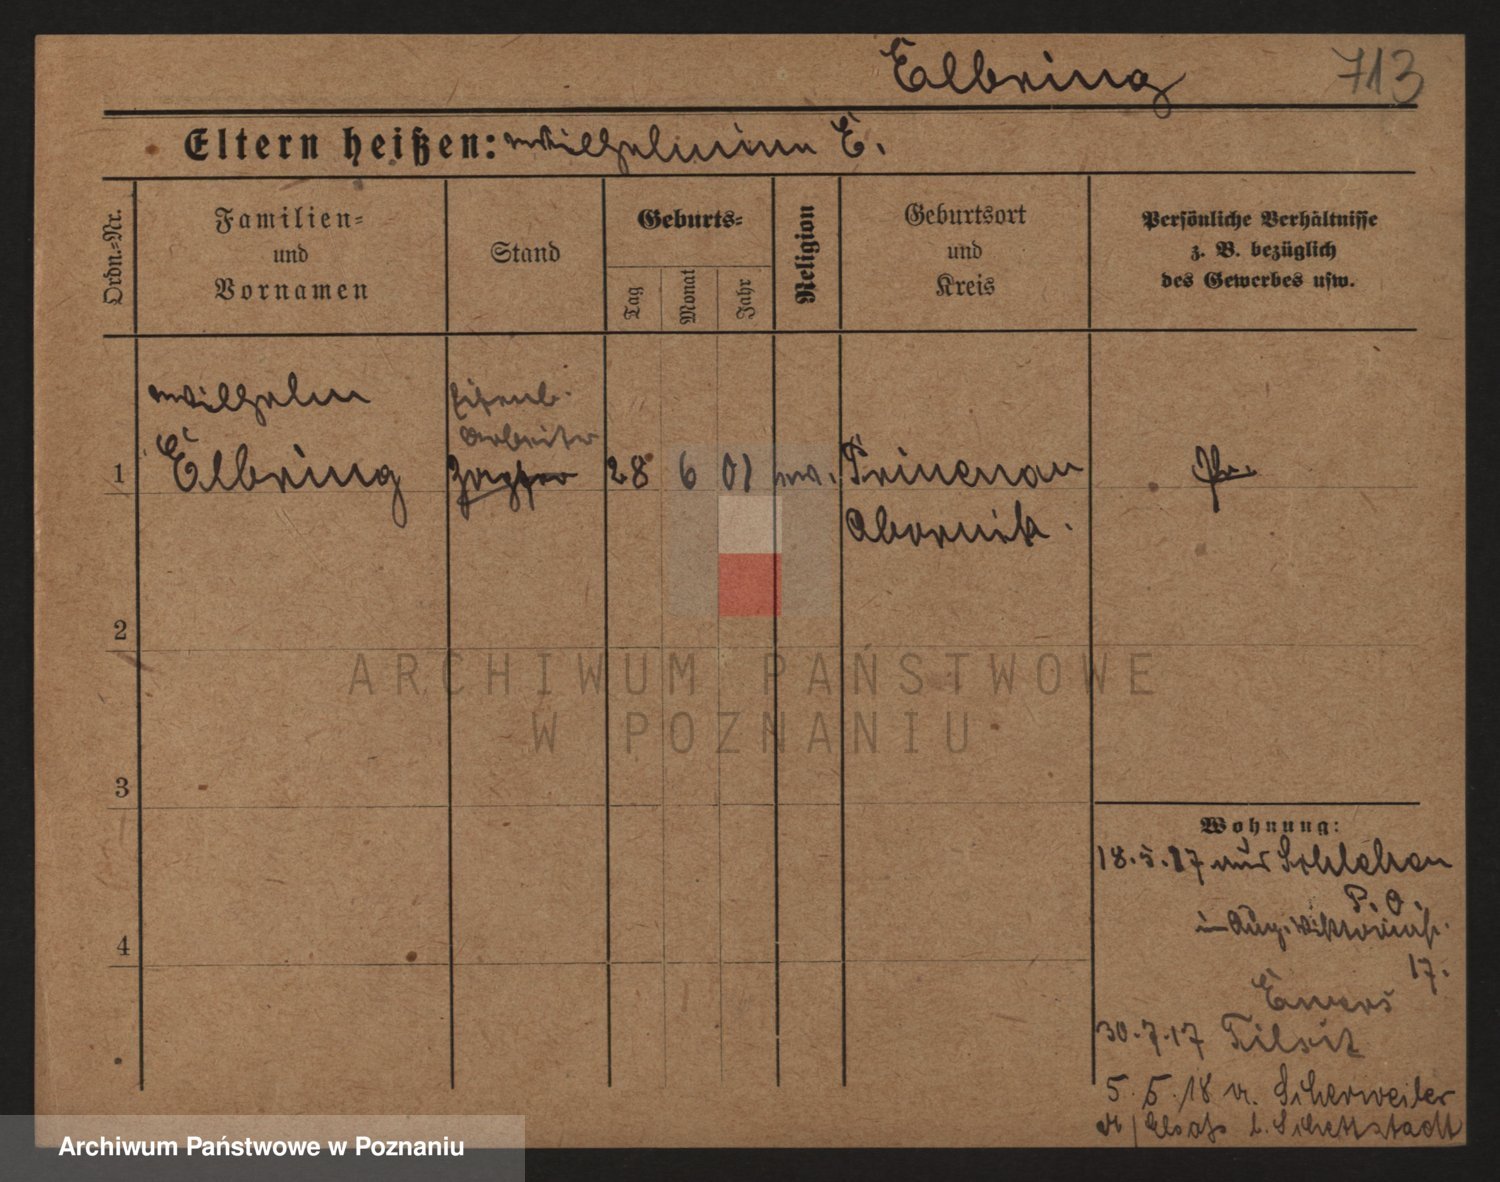 Elbring 713
Eltern heißen: Wilhelmine E.
Ordn.-Nr.
Familien-
und
Vornamen
Stand
Geburts-
Tag
Monat
Jahr
Religion
Geburtsort
und
Kreis
Persönliche Verhältnisse
z. B. bezüglich
des Gewerbes usw.
Wilhelm
Eisenb.
Arbeiter
1 Elbring 28 6 01 Prinenau Pr.
Obornik.
2
ARCHIWUM PAŃSTWOWE
W POZNANIU
3
Wohnung:
18.5.17 aus Schlehen
P. O.
in Aug. Viktoriast.
17.
4
Ewers
30.7.17 Tilsit
5.5.18 v. Scherweiler
Elsaß b. Schettstadt
Archiwum Państwowe w Poznaniu